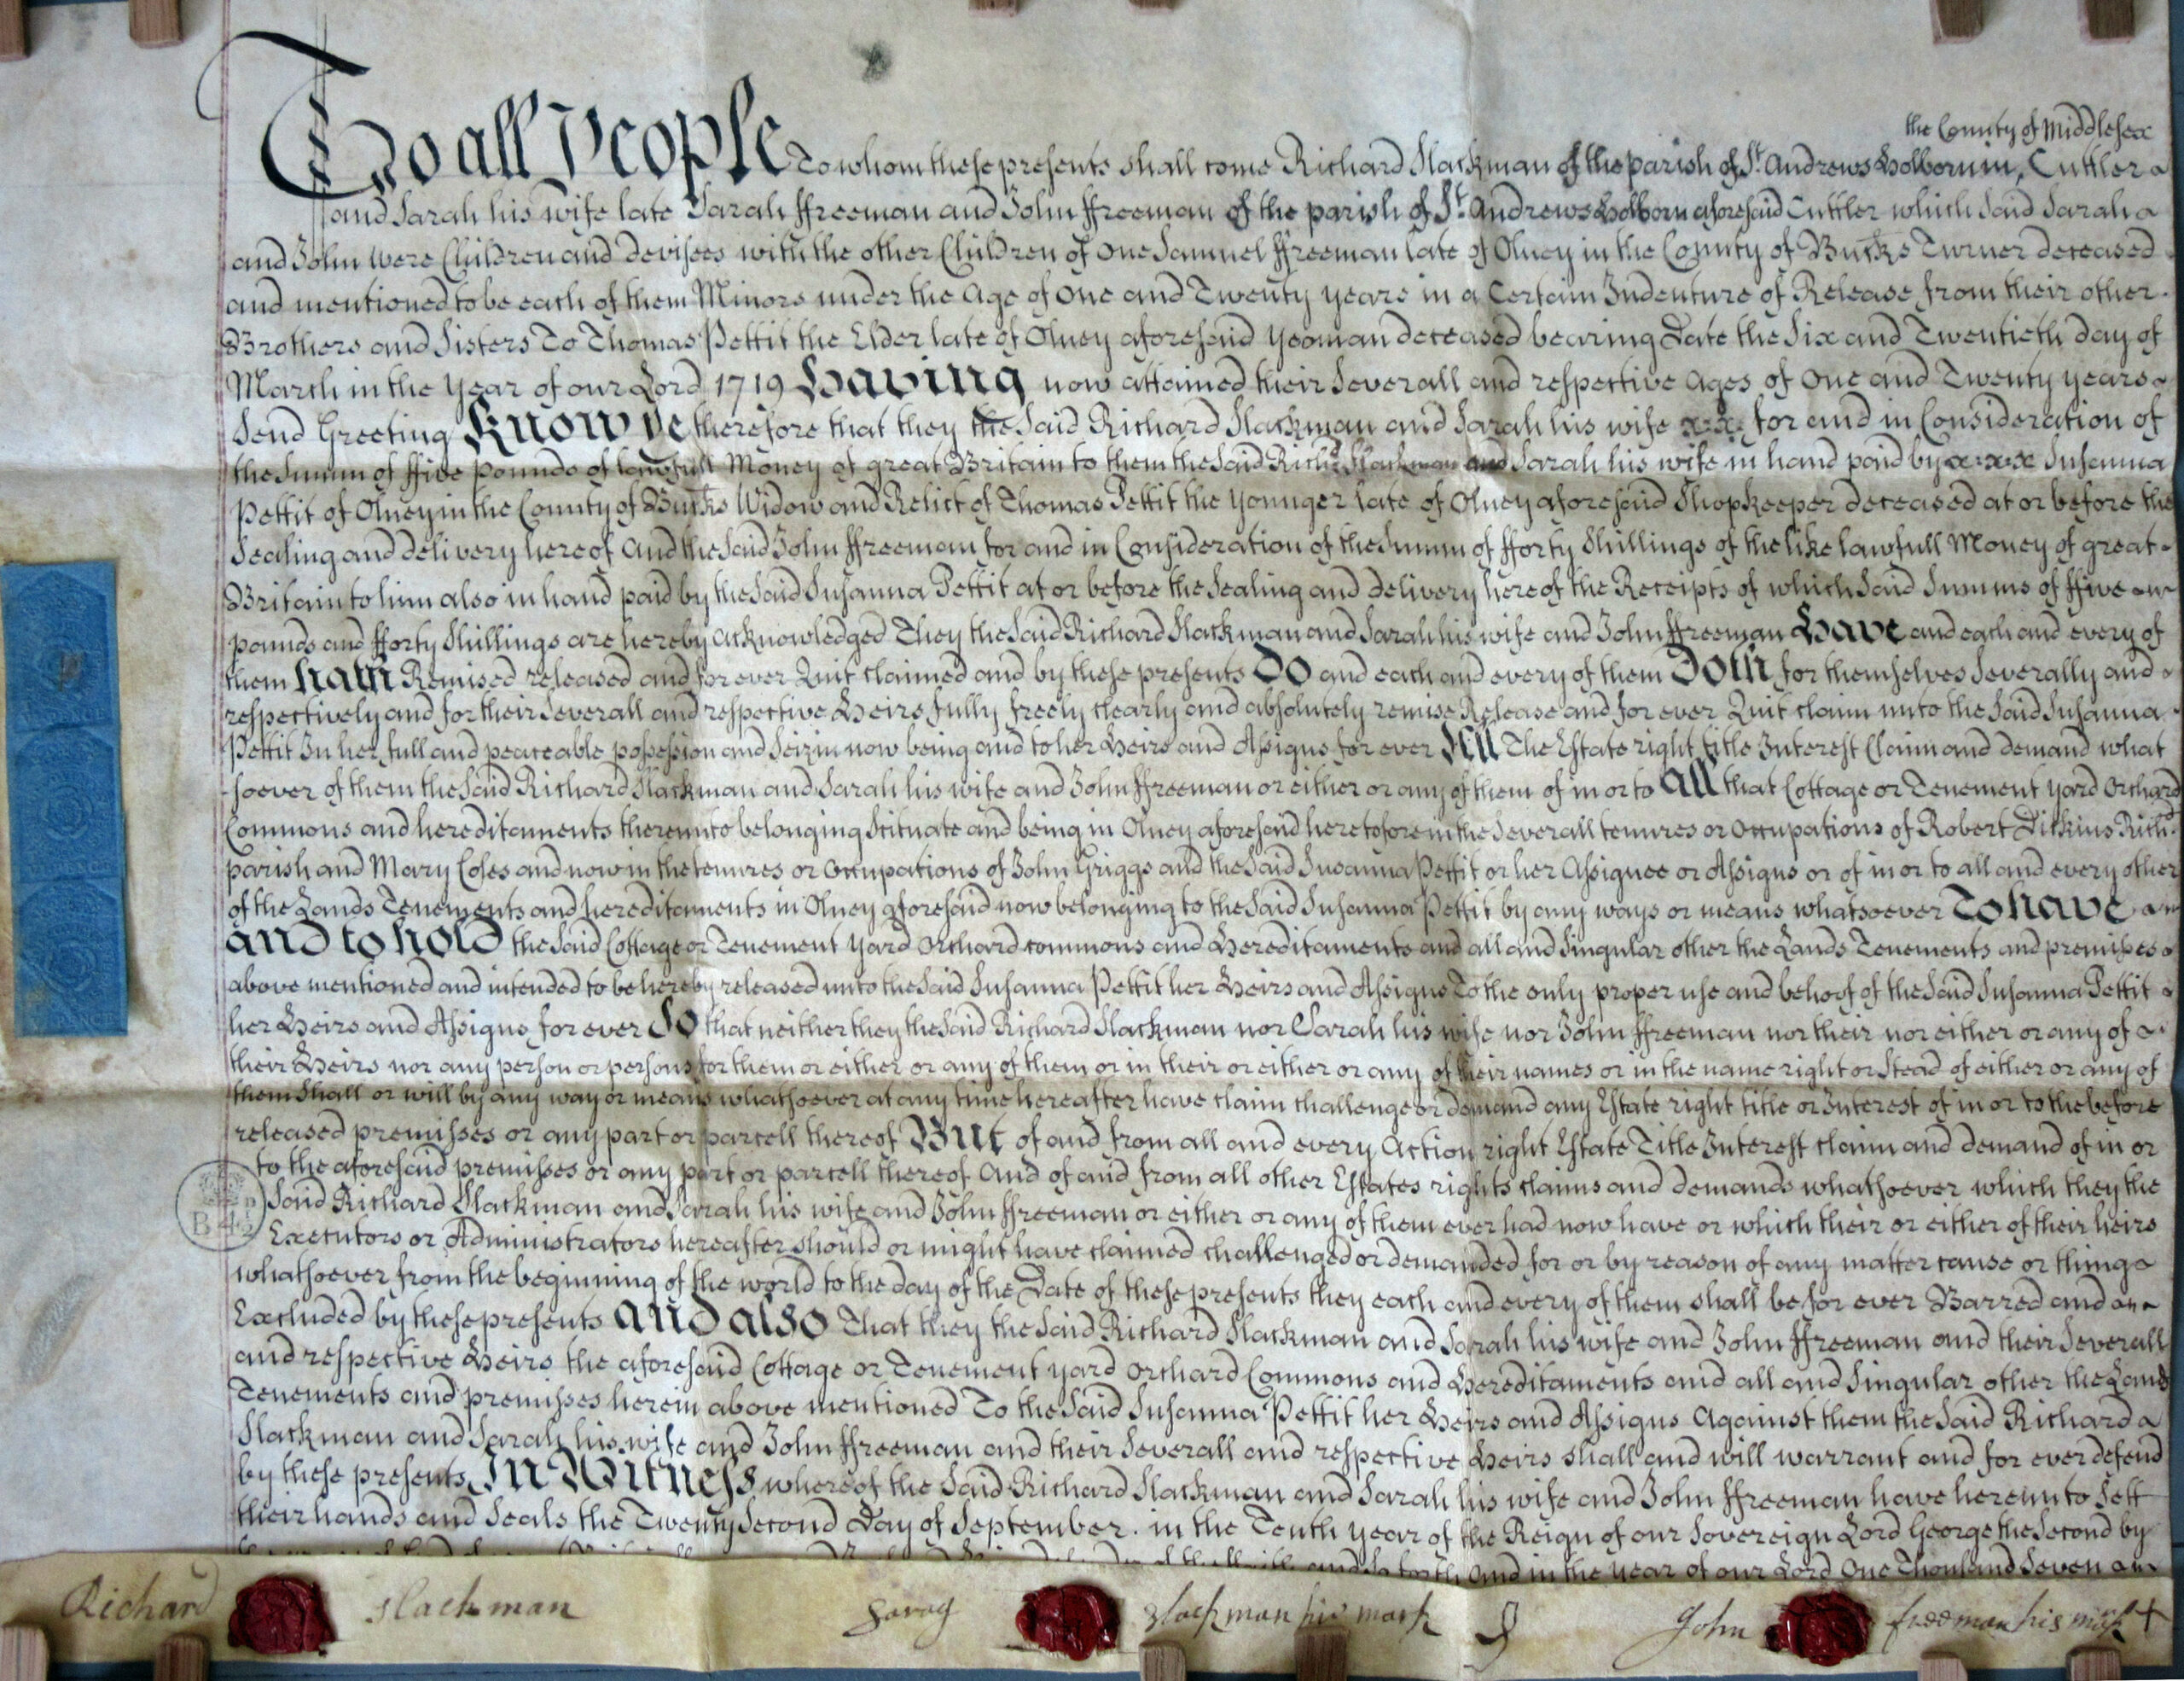 the County of Middlesex
To all People To whom these presents shall come Richard Slackman of the parish of St. Andrews Holborn in, Cuttler
and Sarah his wife late Sarah ffreeman and John ffreeman of the parish of St. Andrews Holborn aforesaid Cuttler which said Sarah
and John were Children and devisees with the other Children of One Samuel ffreeman late of Olney in the County of Bucks Turner deceased
and mentioned to be each of them Minors under the Age of One and Twenty years in a Certain Indenture of Release from their other
Brothers and Sisters To Thomas Pettit the Elder late of Olney aforesaid yeoman deceased bearing Date the Six and Twentieth day of
March in the year of our Lord 1719 Having now attained their Severall and respective Ages of One and Twenty years
Send Greeting Know ye therefore that they the Said Richard Slackman and Sarah his wife for and in Consideration of
the Summ of ffive pounds of lawfull Money of great Britain to them the Said Richd. Slackman and Sarah his wife in hand paid by x:x:x Susanna
Pettit of Olney in the County of Bucks Widow and Relict of Thomas Pettit the younger late of Olney aforesaid Shopkeeper deceased at or before the
Sealing and delivery hereof And the Said John ffreeman for and in Consideration of the Summ of fforty Shillings of the like lawfull Money of great
Britain to him also in hand paid by the Said Susanna Pettit at or before the Sealing and delivery hereof the Receipts of which Said Summs of ffive
pounds and fforty Shillings are hereby acknowledged They the Said Richard Slackman and Sarah his wife and John ffreeman Have and each and every of
them hath Remised released and for ever Quit claimed and by these presents Do and each and every of them Doth for themselves Severally and
respectively and for their Severall and respective Heirs fully freely clearly and absolutely remise Release and for ever Quit claim unto the Said Susanna
Pettit In her full and peaceable possession and Seizin now being and to her Heirs and Assigns for ever All The Estate right title Interest Claim and demand what
soever of them the Said Richard Slackman and Sarah his wife and John ffreeman or either or any of them of in or to All that Cottage or Tenement yard Orchard
Commons and hereditaments thereunto belonging Scituate and being in Olney aforesaid heretofore in the Severall tenures or Occupations of Robert Dickins Richd.
parish and Mary Coles and now in the tenures or Occupations of John Griggs and the Said Susanna Pettit or her Assignee or Assigns or of in or to all and every other
of the Lands Tenements and hereditaments in Olney aforesaid now belonging to the Said Susanna Pettit by any ways or means whatsoever To have
and to hold the Said Cottage or Tenement yard Orchard commons and Hereditaments and all and Singular other the Lands Tenements and premisses
above mentioned and intended to be hereby released unto the Said Susanna Pettit her Heirs and Assigns To the only proper use and behoof of the Said Susanna Pettit
her Heirs and Assigns for ever So that neither they the Said Richard Slackman nor Sarah his wife nor John ffreeman nor their nor either or any of
their Heirs nor any person or persons for them or either or any of them or in their or either or any of their names or in the name right or Stead of either or any of
them Shall or will by any way or means whatsoever at any time hereafter have claim challenge or demand any Estate right title or Interest of in or to the before
released premisses or any part or parcell thereof But of and from all and every Action right Estate Title Interest claim and demand of in or
to the aforesaid premisses or any part or parcell thereof And of and from all other Estates rights claims and demands whatsoever which they the
Said Richard Slackman and Sarah his wife and John ffreeman or either or any of them ever had now have or which their or either of their heirs
Executors or Administrators hereafter should or might have claimed challenged or demanded for or by reason of any matter cause or thing
whatsoever from the beginning of the world to the day of the Date of these presents they each and every of them shall be for ever Barred and
Excluded by these presents and also That they the Said Richard Slackman and Sarah his wife and John ffreeman and their Severall
and respective Heirs the aforesaid Cottage or Tenement yard Orchard Commons and Hereditaments and all and Singular other the Lands
Tenements and premisses herein above mentioned To the Said Susanna Pettit her Heirs and Assigns Against them the Said Richard
Slackman and Sarah his wife and John ffreeman and their Severall and respective Heirs shall and will warrant and for ever defend
by these presents In Witness whereof the Said Richard Slackman and Sarah his wife and John ffreeman have hereunto Sett
their hands and Seals the Twenty Second Day of September. in the Tenth year of the Reign of our Sovereign Lord George the Second by
And in the year of our Lord One Thousand Seven
Richard Slackman
Sarag Slackman his mark
John freeman his mark +